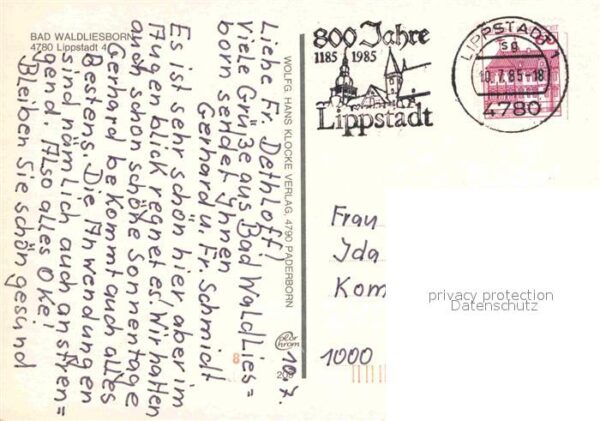 BAD WALDLIESBORN
4780 Lippstadt 4
10.7.
Liebe Fr. Dethloff!
Viele Grüße aus Bad Waldlies=
born sendet Ihnen
Gerhard u. Fr. Schmidt
Es ist sehr schön hier aber im
Augenblick regnet es! Wir hatten
auch schon schöne Sonnentage
Gerhard bekommt auch alles
Bestens. Die Anwendungen
sind nämlich auch anstren=
gend. Also alles Okei
Bleiben Sie schön gesund
WOLFG. HANS KLOCKE VERLAG, 4790 PADERBORN
color
chrom
8
209
800 Jahre
1185 1985
Lippstadt
LIPPSTADT
sg
10.7.85-18
4780
Frau
Ida
Kom
1000
privacy protection
Datenschutz